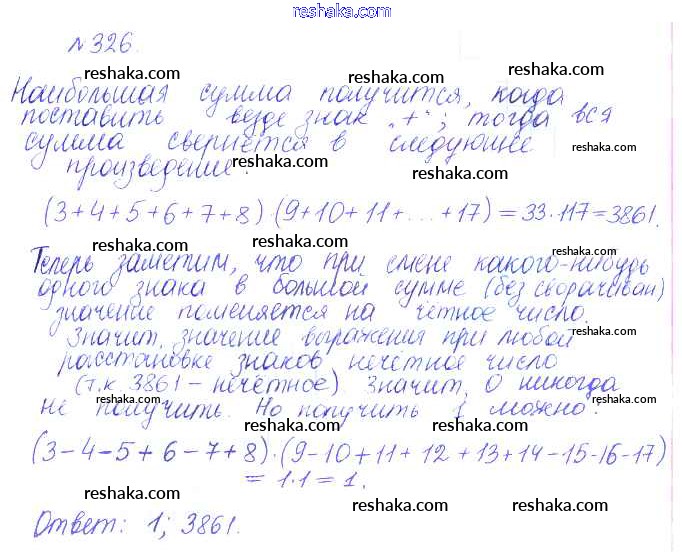 reshaka.com
№326. reshaka.com reshaka.com
Наибольшая сумма получится, когда
поставить везде знак „+“; тогда вся
сумма свернётся в следующее reshaka.com
произведение: reshaka.com reshaka.com
(3+4+5+6+7+8)·(9+10+11+...+17)=33·117=3861.
reshaka.com reshaka.com reshaka.com
Теперь заметим, что при смене какого-нибудь
одного знака в большой сумме (без сворачиван)
значение поменяется на чётное число.
reshaka.com reshaka.com
Значит, значение выражения при любой reshaka.com
расстановке знаков нечётное число
(т.к. 3861 – нечётное). Значит, 0 никогда
не получить. Но получить 1 можно:
reshaka.com reshaka.com reshaka.com
(3-4-5+6-7+8)·(9-10+11+12+13+14-15-16-17)
= 1·1 = 1.
reshaka.com reshaka.com reshaka.com
Ответ: 1; 3861.
reshaka.com